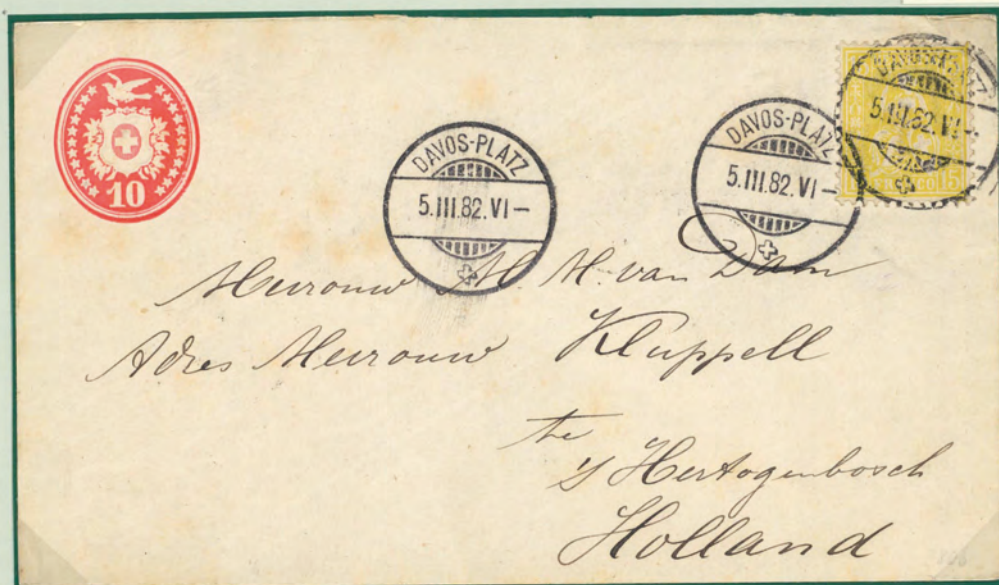 10
DAVOS-PLATZ
5.III.82.VI–
DAVOS-PLATZ
5.III.82.VI–
DAVOS-PLATZ
5.III.82.VI–
FRANCO 15
Mevrouw M. M. van Dam
Adres Mevrouw Kluppell
te
's Hertogenbosch
Holland